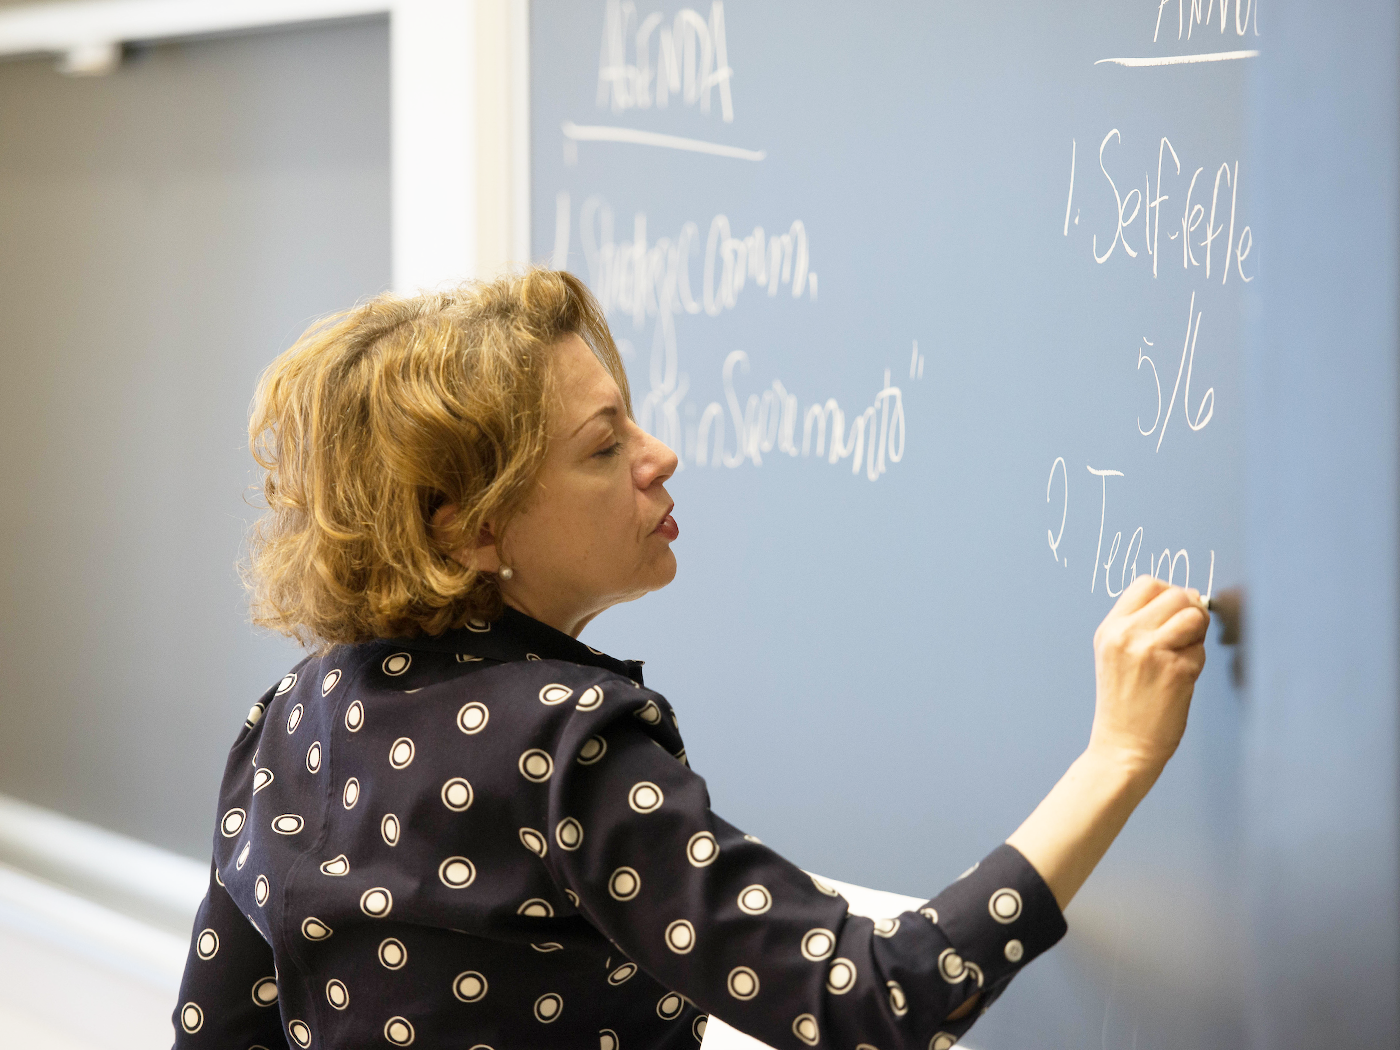 AGENDA
1. Strategic Comm.
in Sacramento"
1. Self-refle
5/6
2. Team